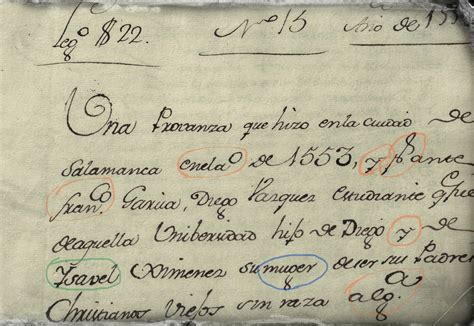 Legº 822. Nº 15 Año de 155
Una Provanza que hizo enla ciudad de
Salamanca enelaº de 1553, y pante
franco Garcia, Diego Vazquez estudiante q fue
deaquella Unibersidad hijo de Diego y de
Ysavel Ximenez sumuger deser sus Padres
Christianos viejos sin raza alga